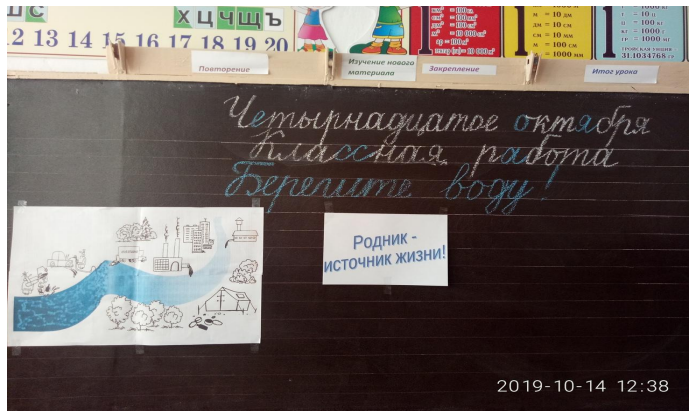 ШС
ХЦЧЩЪ
12 13 14 15 16 17 18 19 20
Повторение
Изучение нового
материала
Закрепление
Итог урока
Четырнадцатое октября
Классная работа
Берегите воду!
Родник -
источник жизни!
2019-10-14 12:38